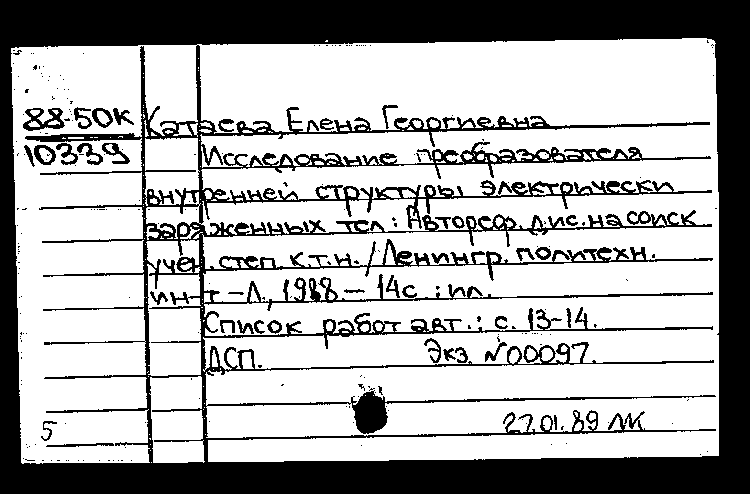 88-50к Катаева, Елена Георгиевна
10339 Исследование преобразователя
внутренней структуры электрически
заряженных тел: Автореф. дис. на соиск
учен. степ. к.т.н. / Ленингр. политехн.
ин-т - Л., 1988. - 14с. : ил.
Список работ авт.: с. 13-14.
ДСП. Экз. №00097.
5 27.01.89 ЛК